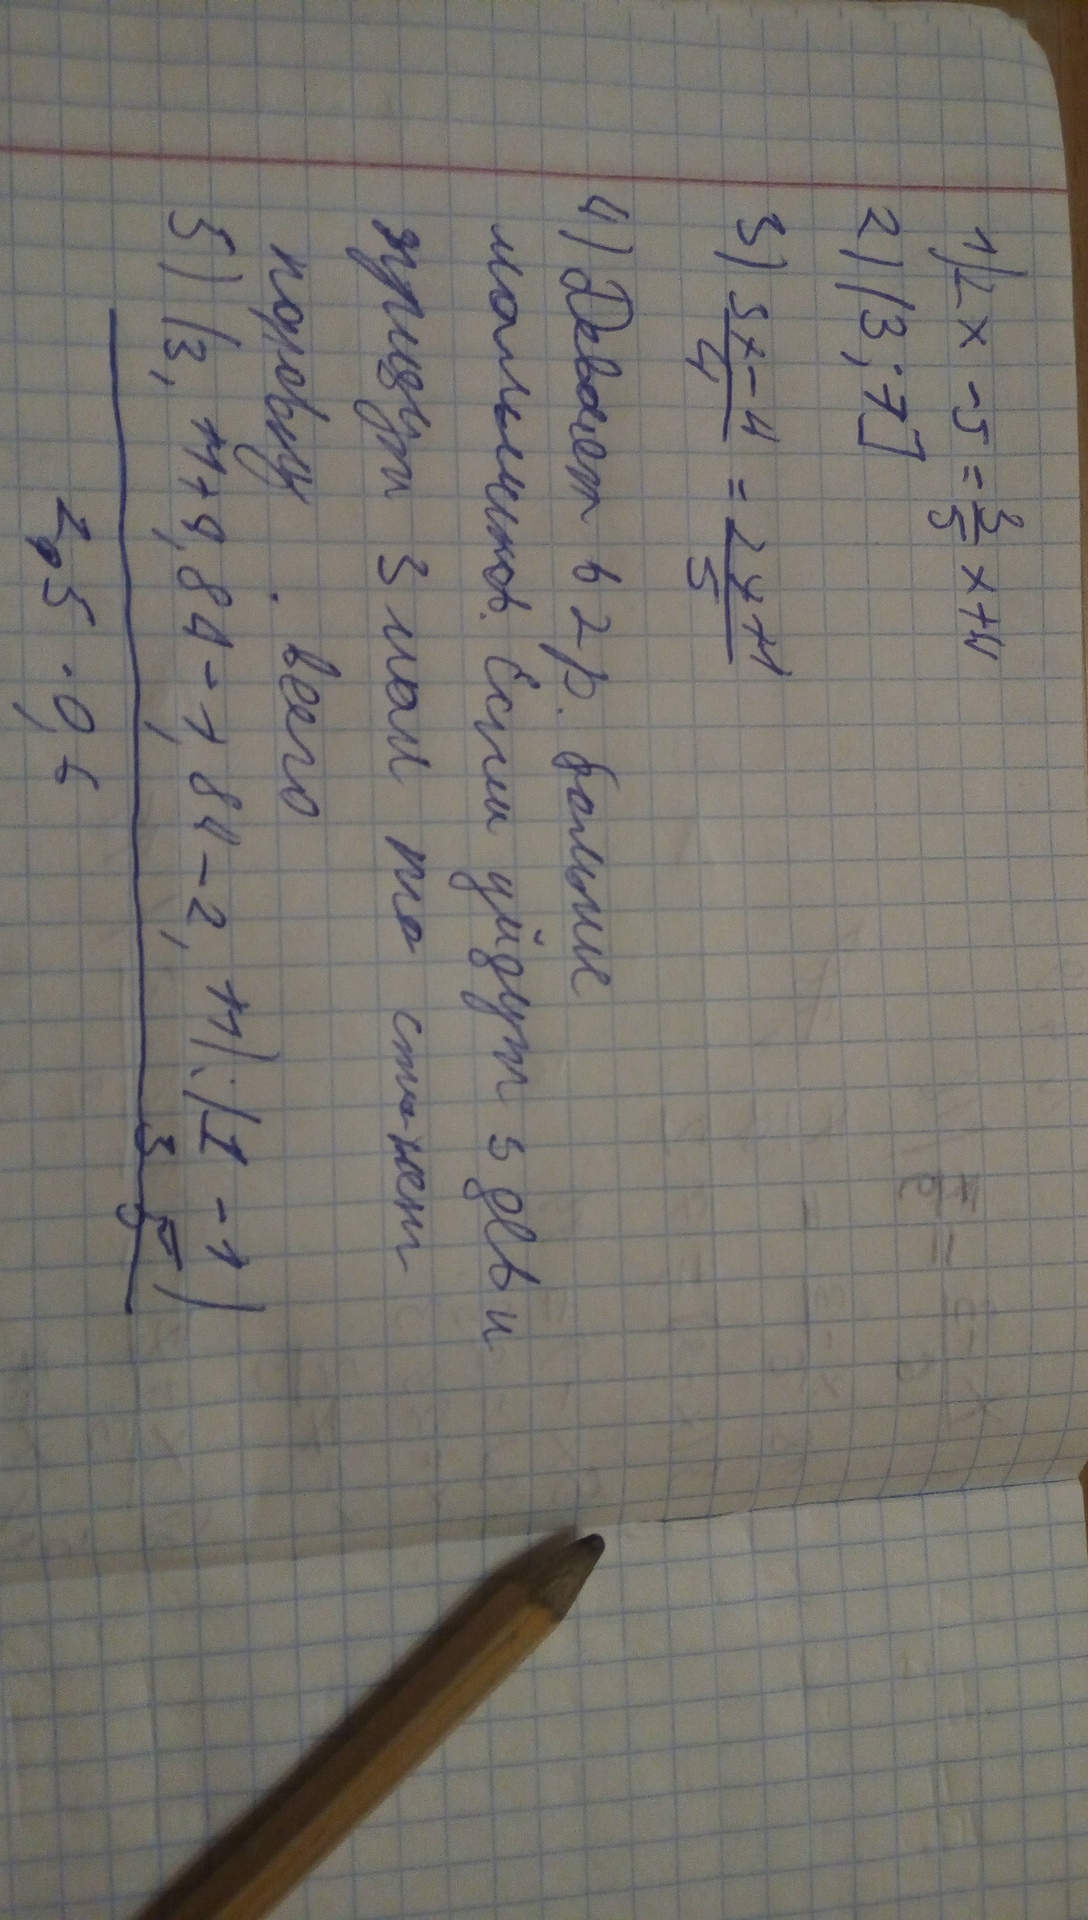 1) 2x - 5 = 3/5 x + 4
2) (3; 7]
3) (3x - 4)/4 = (2x + 1)/5
4) Девочек в 2 р. больше
мальчиков. Если уйдут 3 дев и
придут 3 мал то станет
поровну. всего
5) (3,11 + 9,84 - 7,84 - 2,11) : (1/3 - 1/5)
2,5 · 0,6